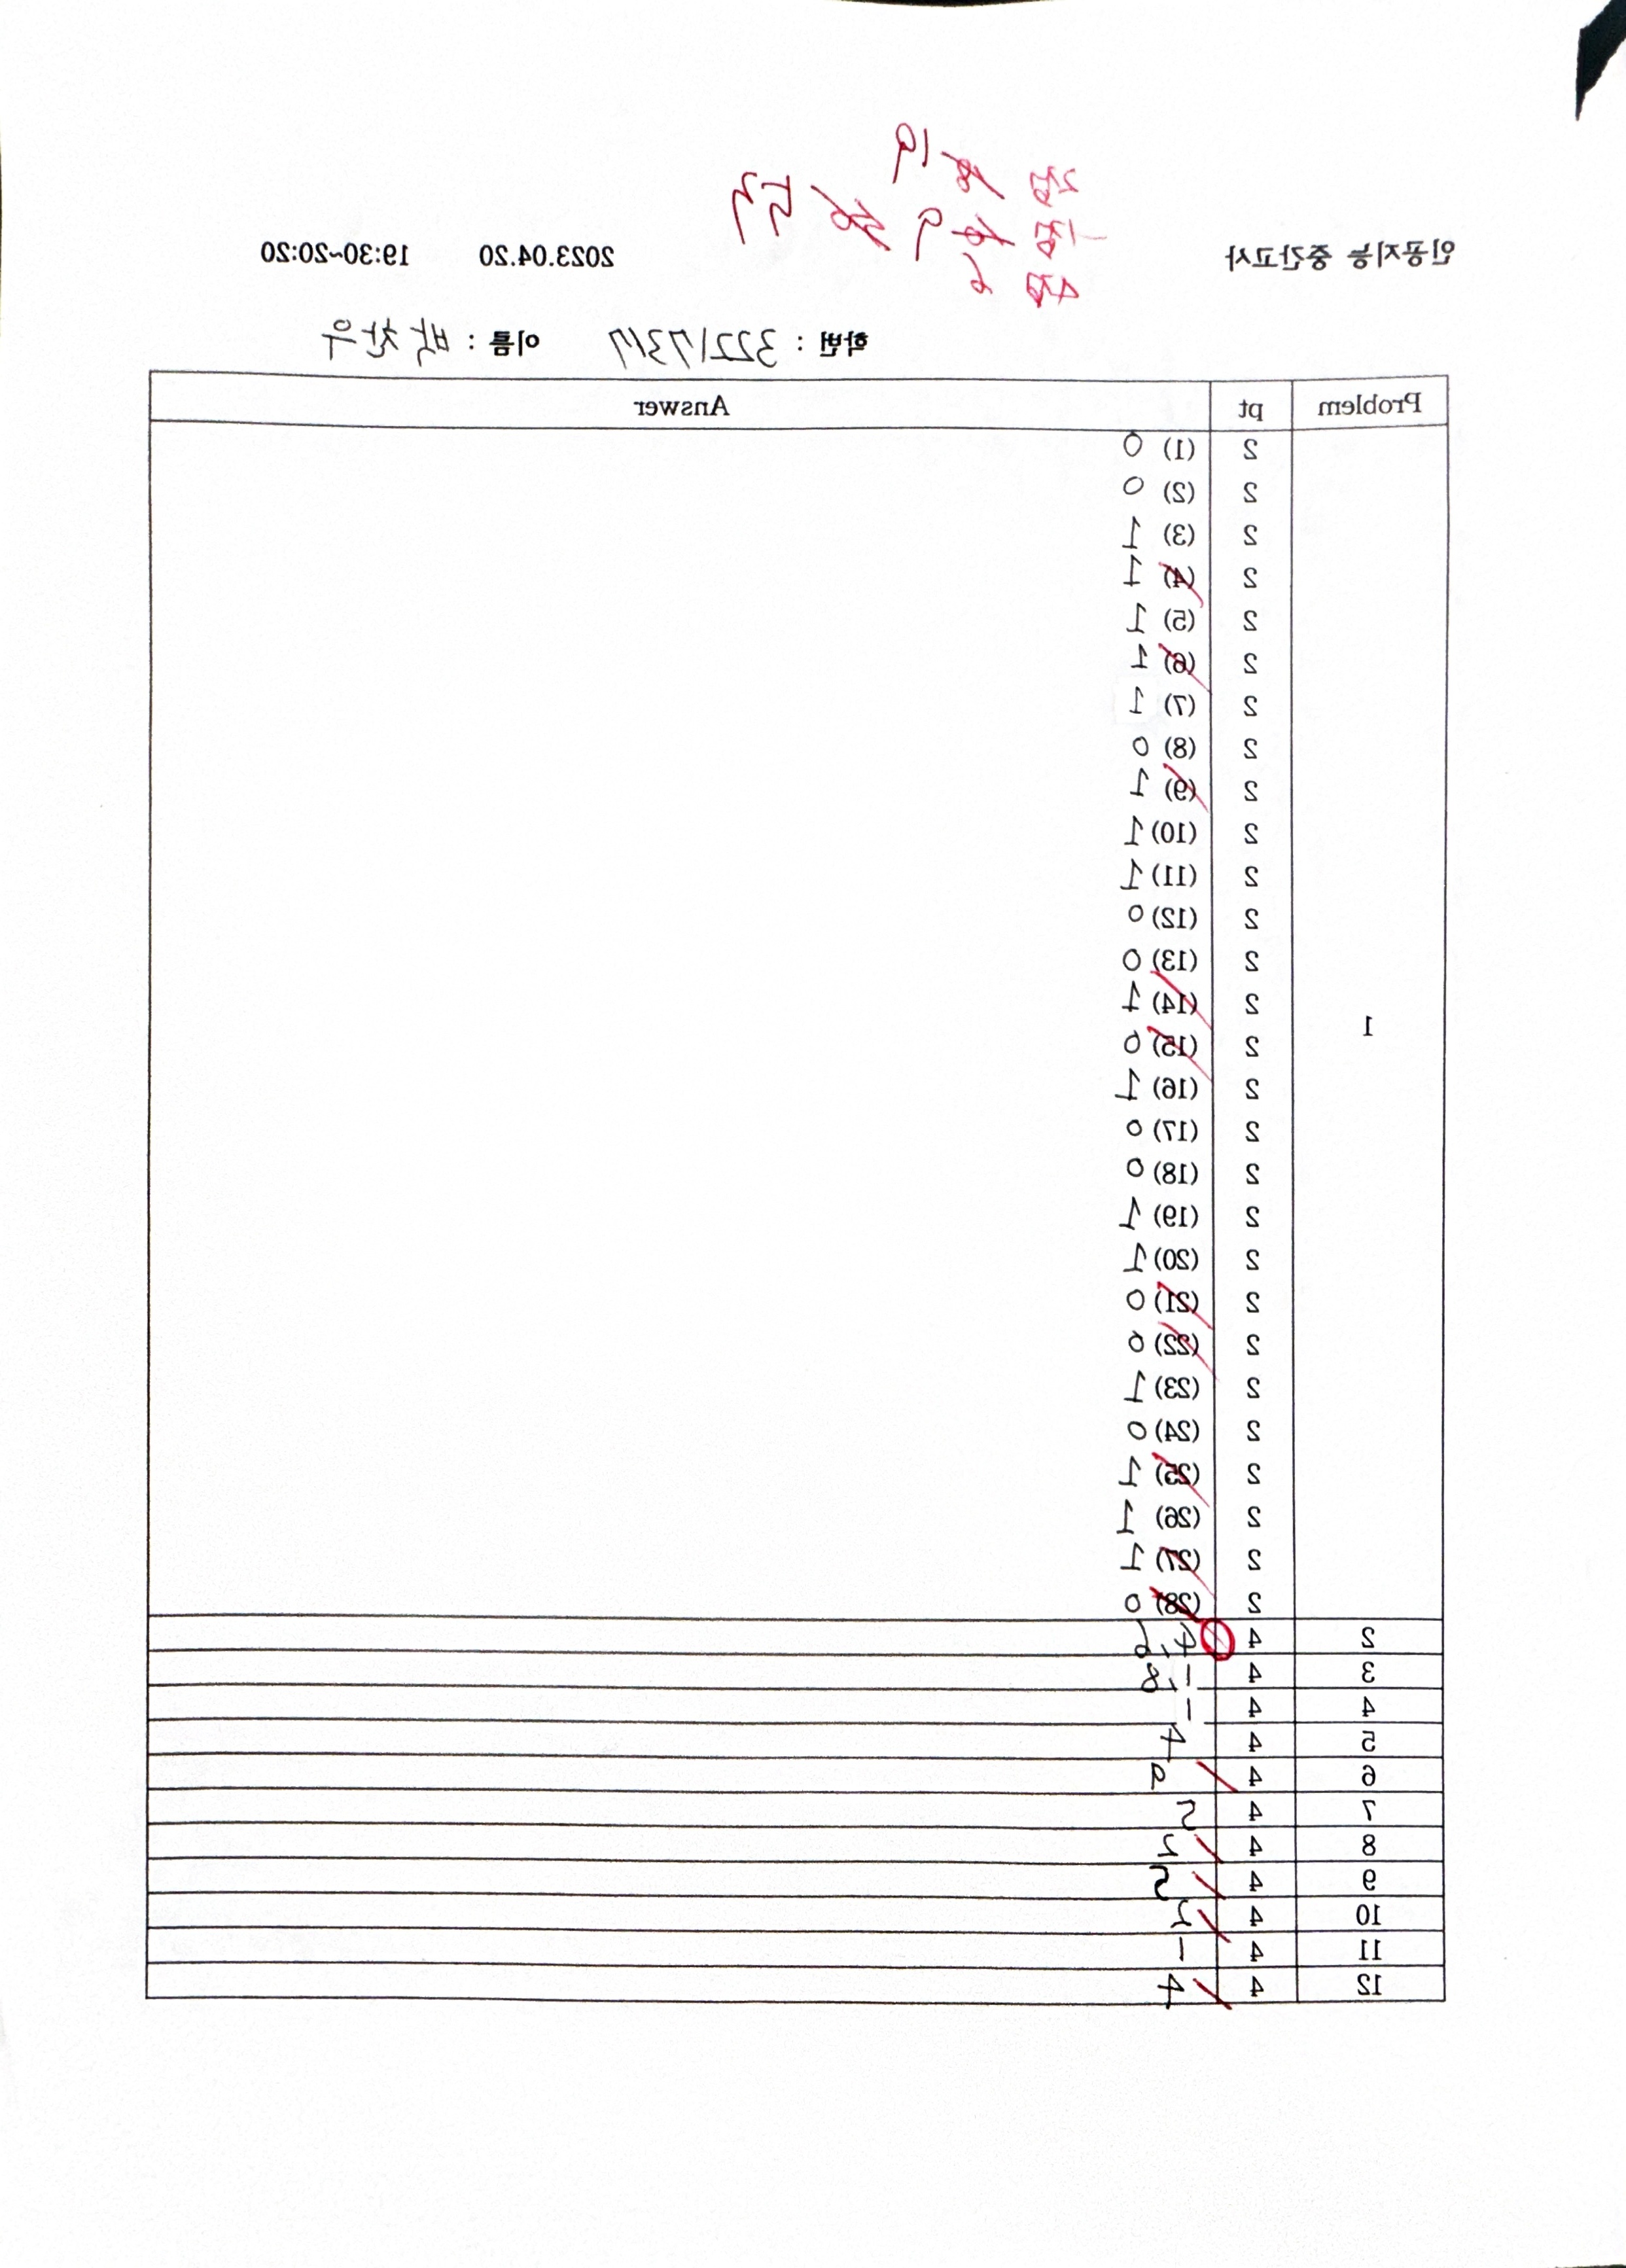 인공지능 중간고사 2023.04.20 19:30~20:20
학번 : 32217317 이름 : 박찬우
Problem pt Answer
1
2 (1) 0
2 (2) 0
2 (3) 1
2 (4) 1
2 (5) 1
2 (6) 1
2 (7) 1
2 (8) 0
2 (9) 1
2 (10) 1
2 (11) 1
2 (12) 0
2 (13) 0
2 (14) 1
2 (15) 0
2 (16) 1
2 (17) 0
2 (18) 0
2 (19) 1
2 (20) 1
2 (21) 0
2 (22) 0
2 (23) 1
2 (24) 0
2 (25) 1
2 (26) 1
2 (27) 1
2 (28) 0
2 4 4, 6
3 4 1, 8
4 4 1
5 4 4
6 4
7 4 5
8 4
9 4
10 4
11 4 1
12 4 4